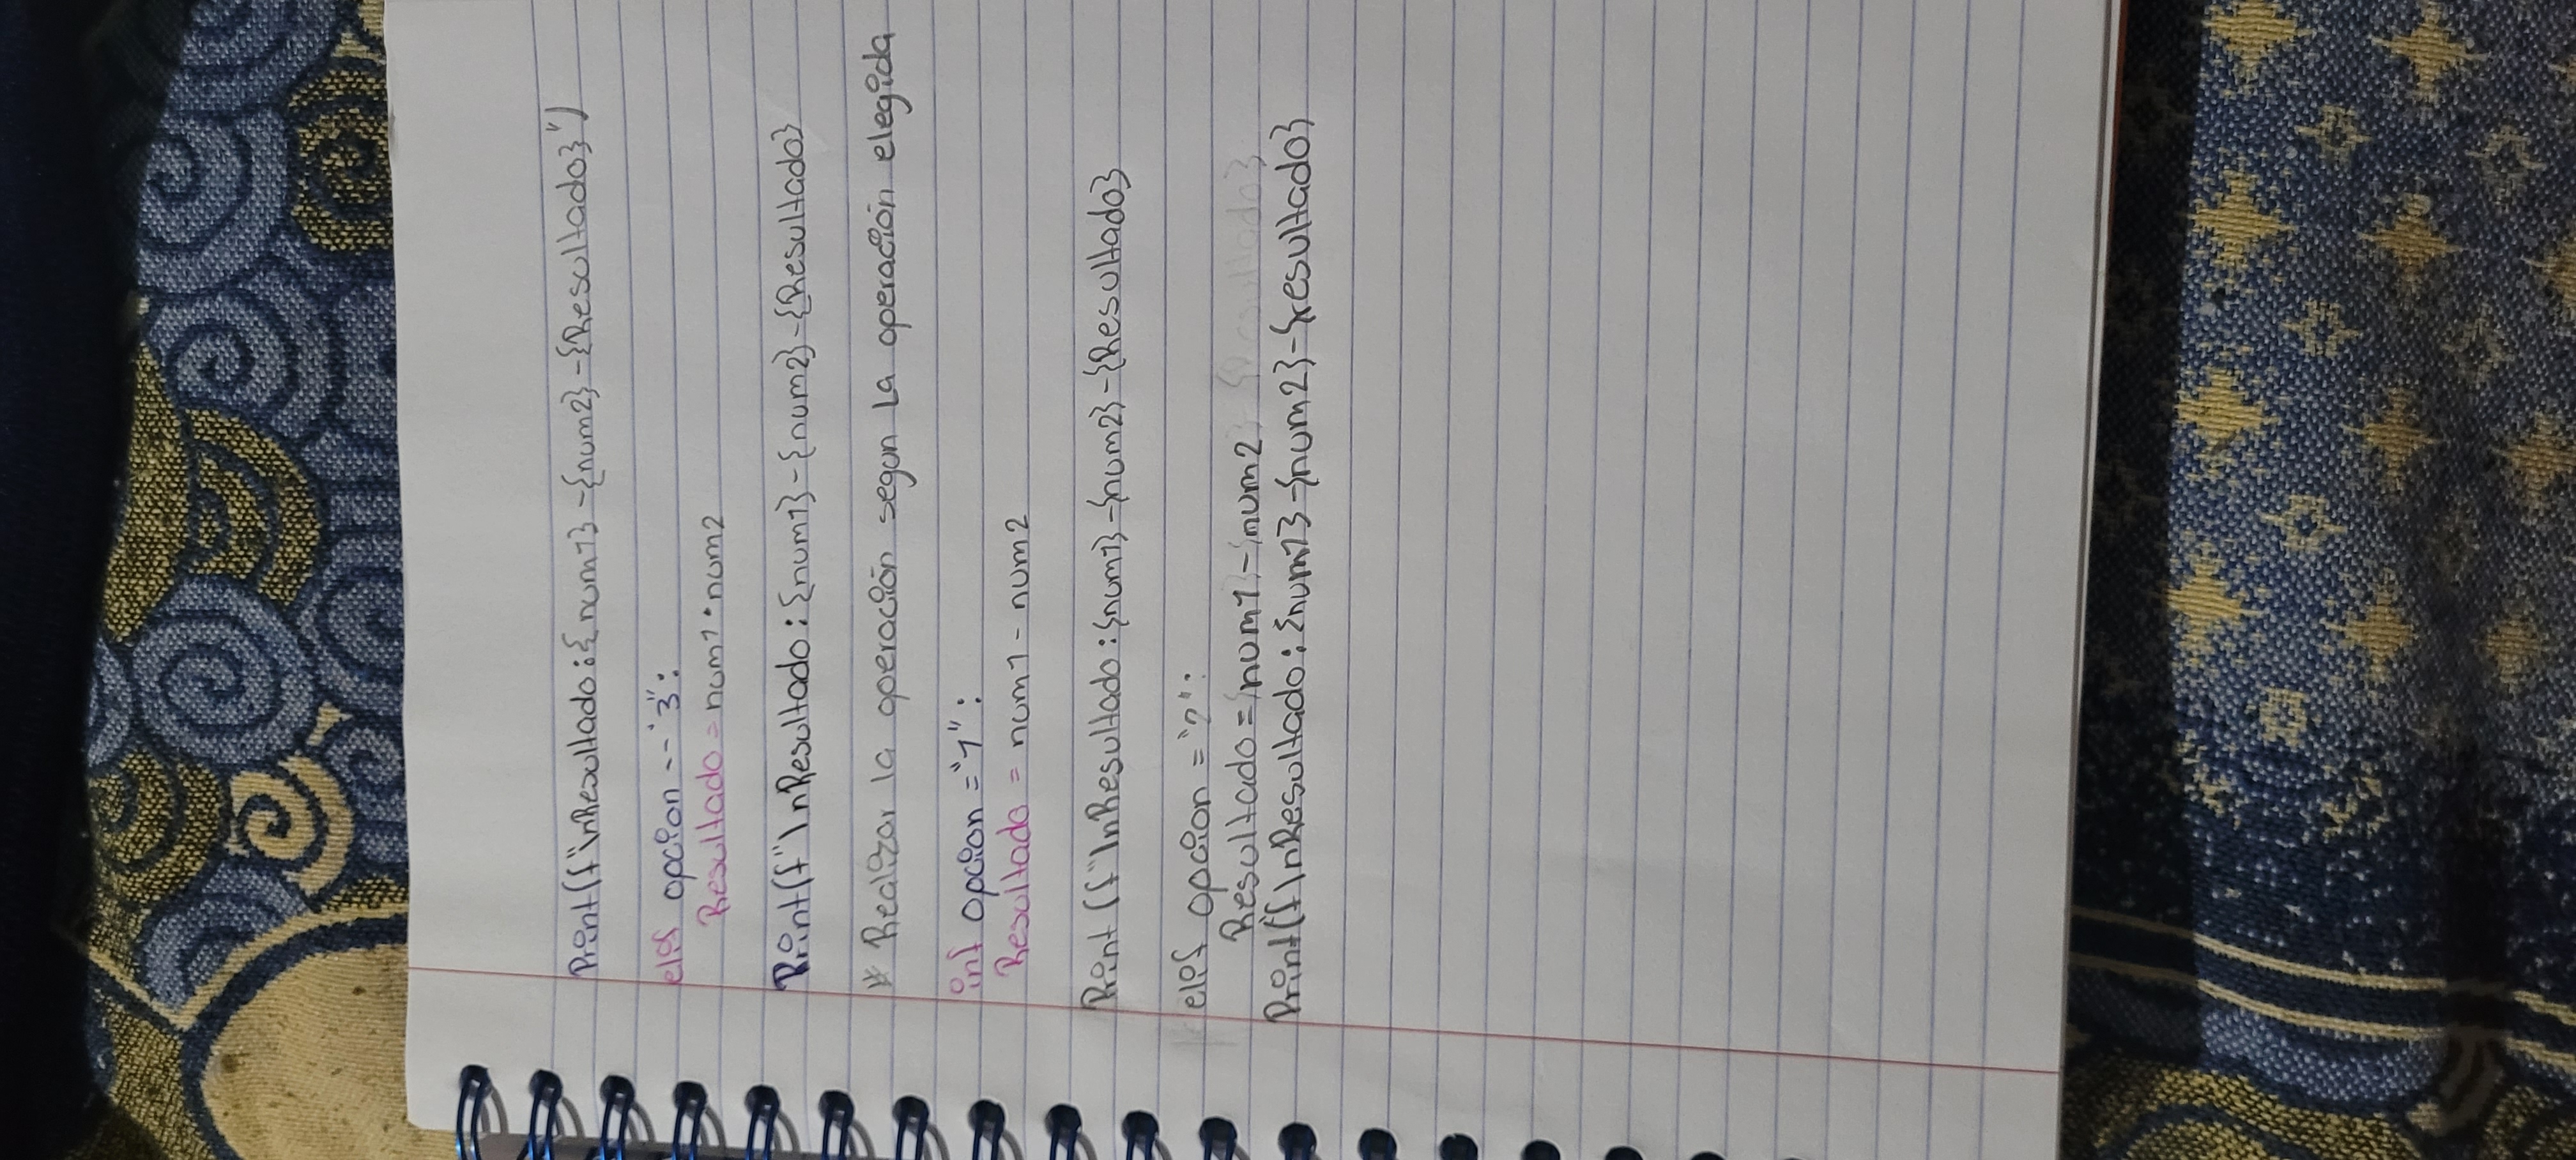 Print(f"\nResultado:{num1}-{num2}-{Resultado}")
elif opcion--"3":
Resultado=num1·num2
Print(f"\nResultado:{num1}-{num2}-{Resultado}
# Realizar la operación segun La operación elegida
inf opcion="1":
Resultado = num1 - num2
Print(f"\nResultado:{num1}-{num2}-{Resultado}
elif opcion="2":
Resultado={num1}-{num2
Print(f"\nResultado:{num1}-{num2}-{resultado}